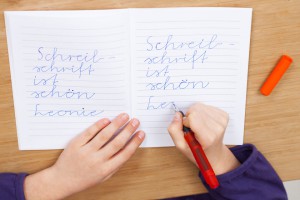 Schreib-
schrift
ist
schön
Leonie
Schreib-
schrift
ist
schön
Leo